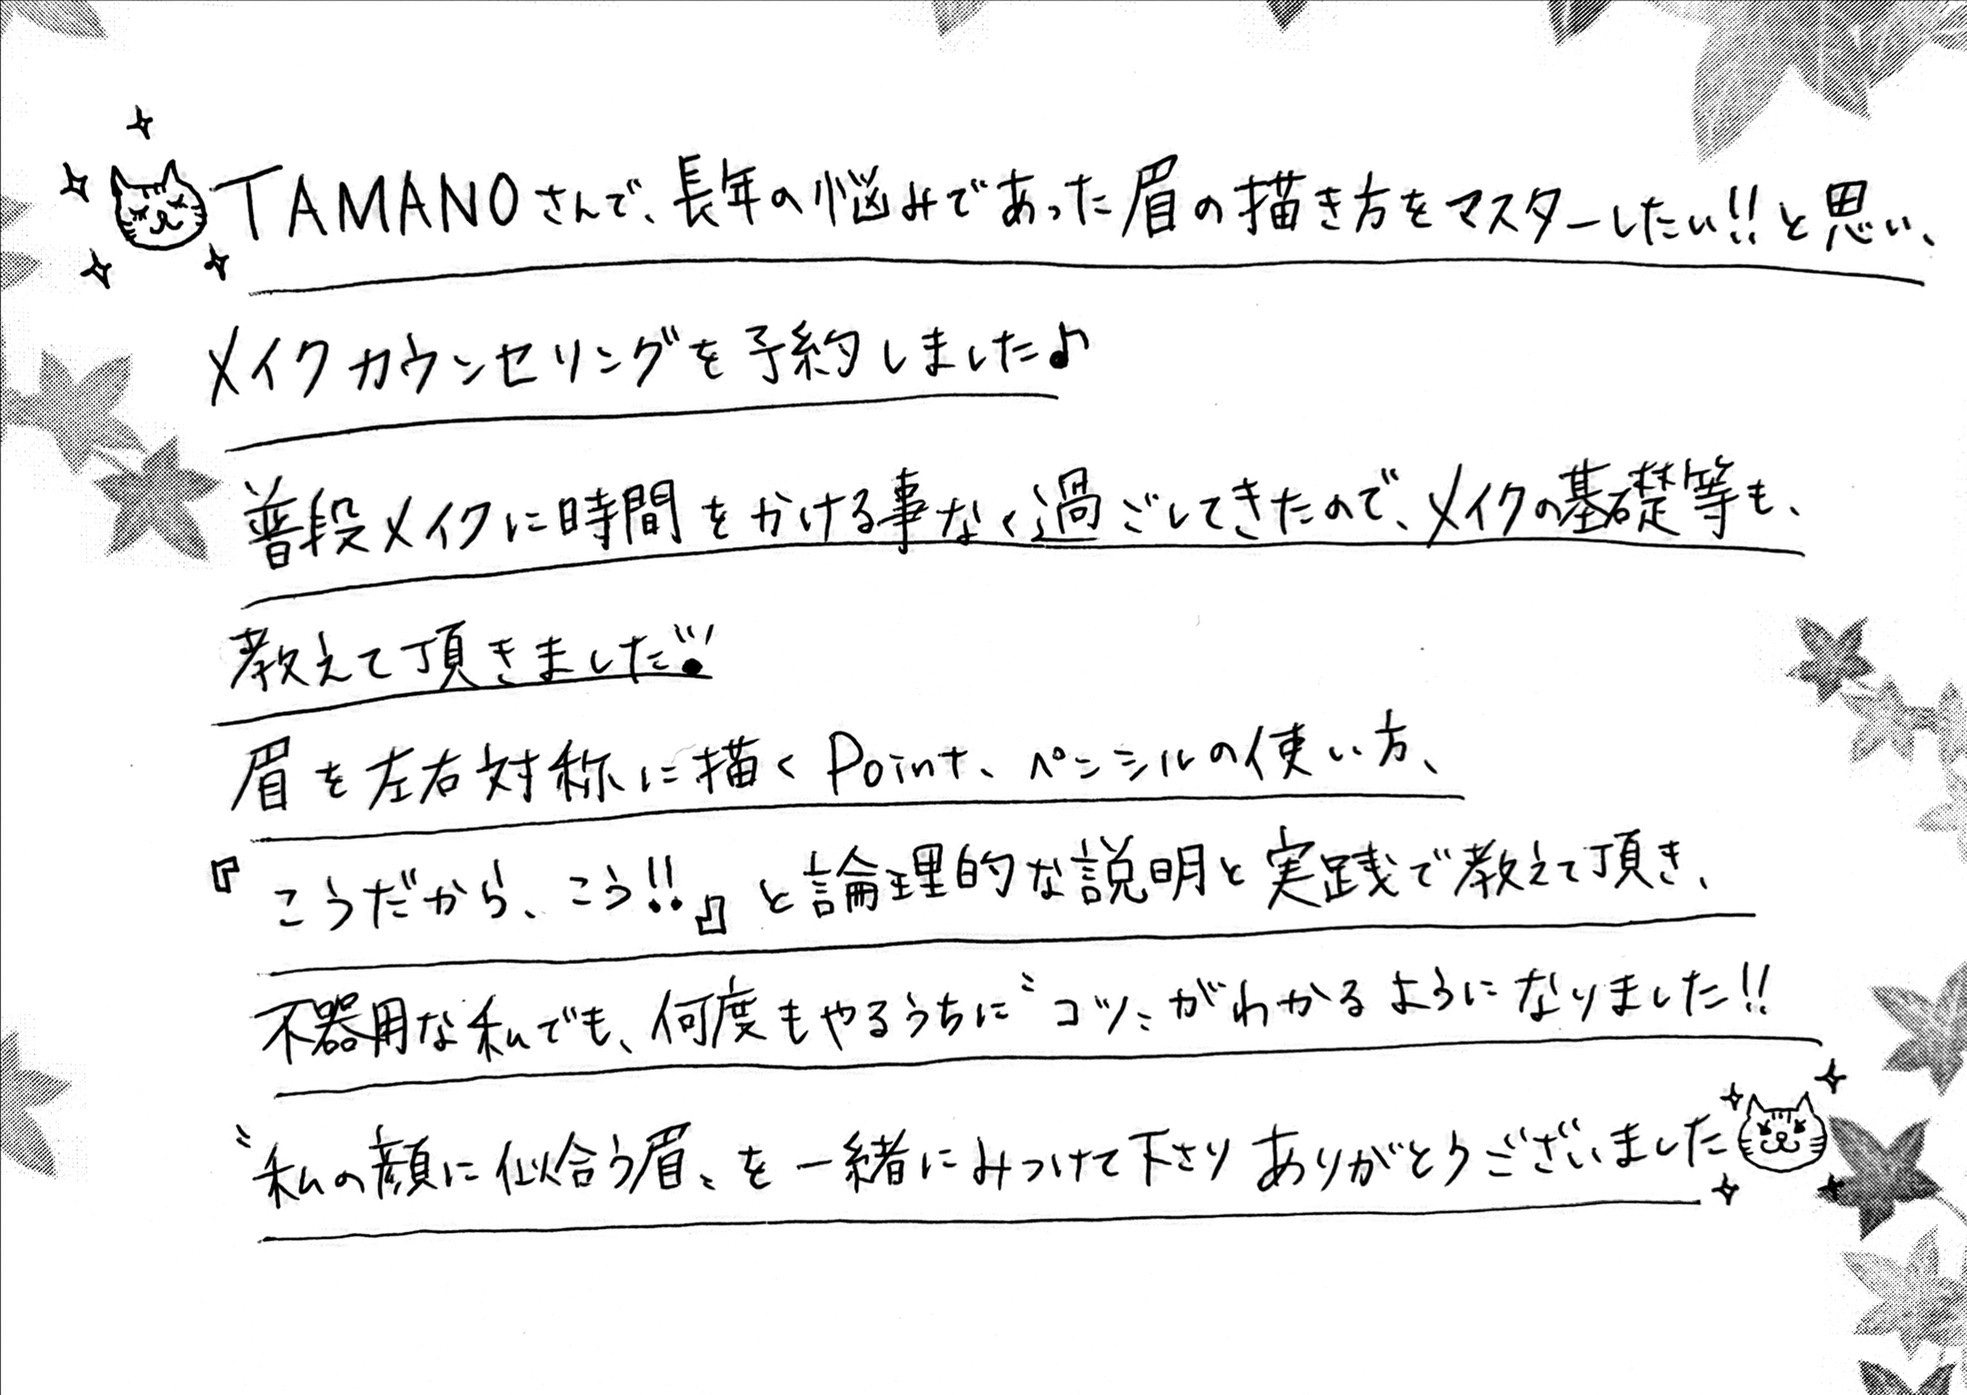 TAMANOさんで、長年の悩みであった眉の描き方をマスターしたい!!と思い、
メイクカウンセリングを予約しました♪
普段メイクに時間をかける事なく過ごしてきたので、メイクの基礎等も、
教えて頂きました!
眉を左右対称に描くPoint、ペンシルの使い方、
『こうだから、こう!!』と論理的な説明と実践で教えて頂き、
不器用な私でも、何度もやるうちに〝コツ〟がわかるようになりました!!
〝私の顔に似合う眉〟を一緒にみつけて下さりありがとうございました